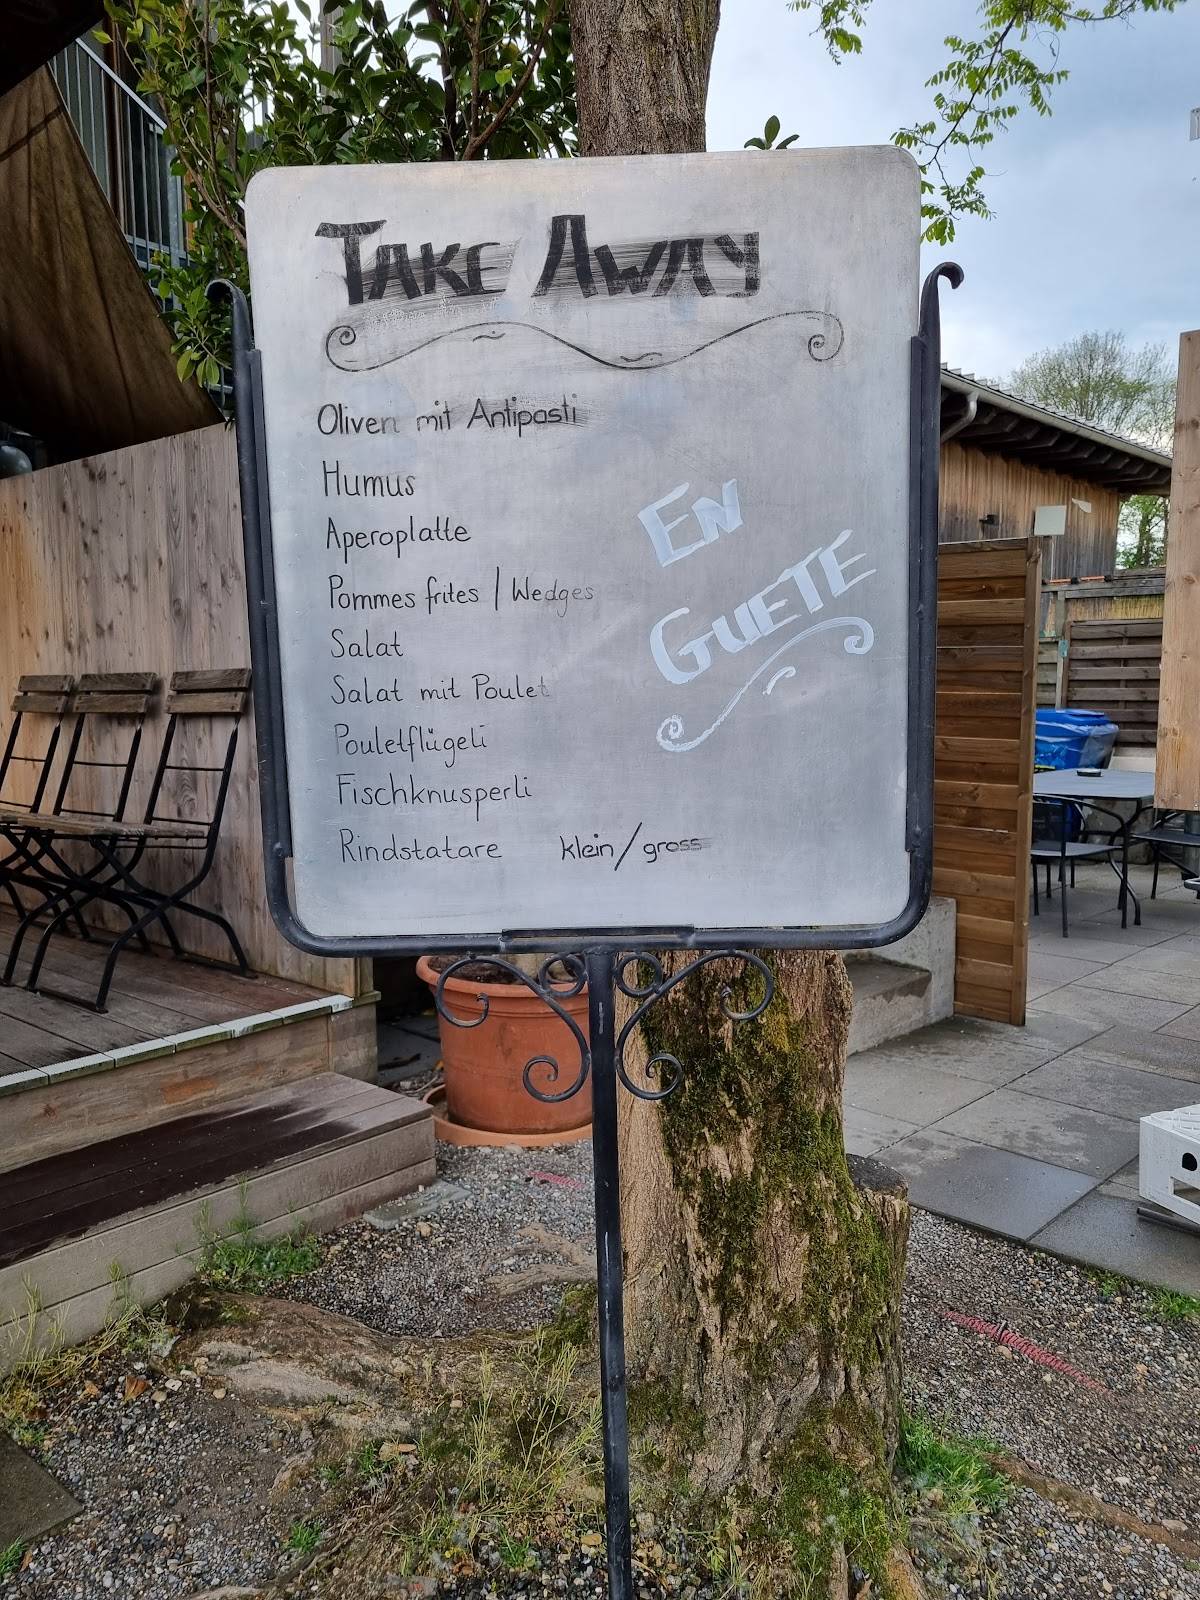 TAKE AWAY
Oliven mit Antipasti
Humus
Aperoplatte
Pommes frites / Wedges
Salat
Salat mit Poulet
Pouletflügeli
Fischknusperli
Rindstatare klein/gross
EN
GUETE